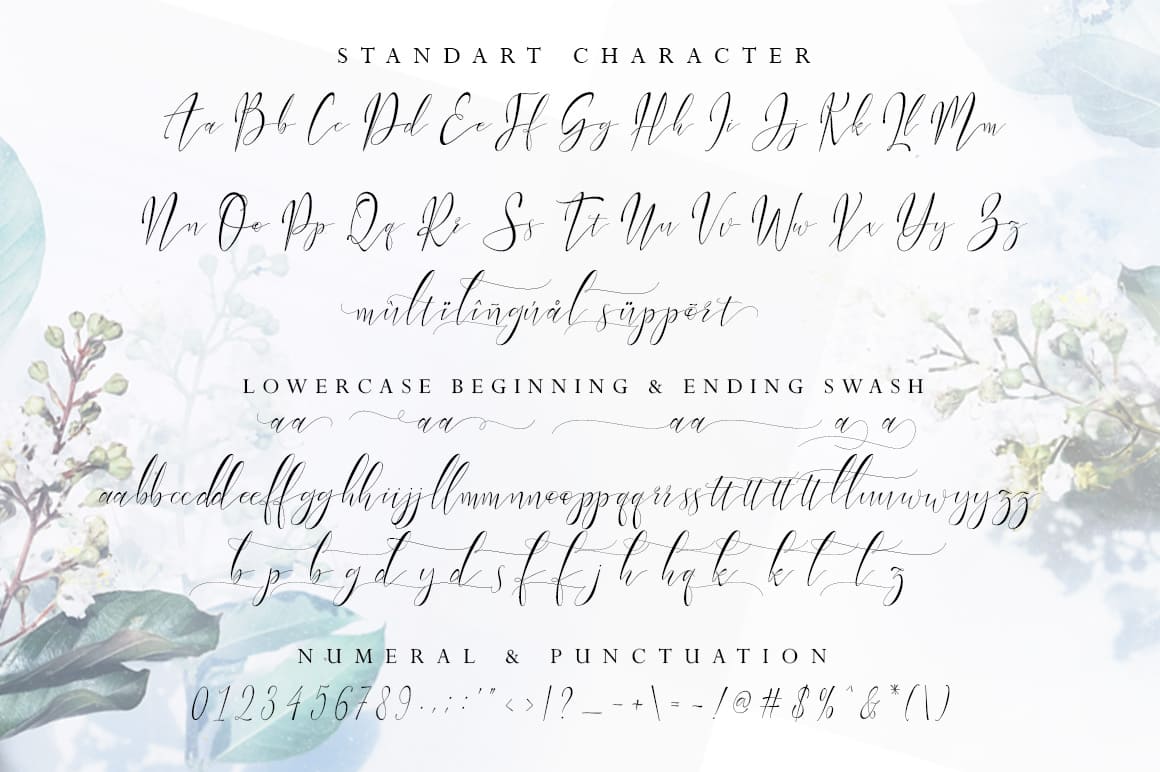 STANDART CHARACTER
Aa Bb Cc Dd Ee Ff Gg Hh Ii Jj Kk Ll Mm
Nn Oo Pp Qq Rr Ss Tt Uu Vv Ww Xx Yy Zz
mùltïlîñgúål süppørt
LOWERCASE BEGINNING & ENDING SWASH
aa aa aa a a
b p b g d y d s f f j h h q k k t l z
NUMERAL & PUNCTUATION
0123456789.,;:'"<>|?_-+\=-!@#$%^&*(\)